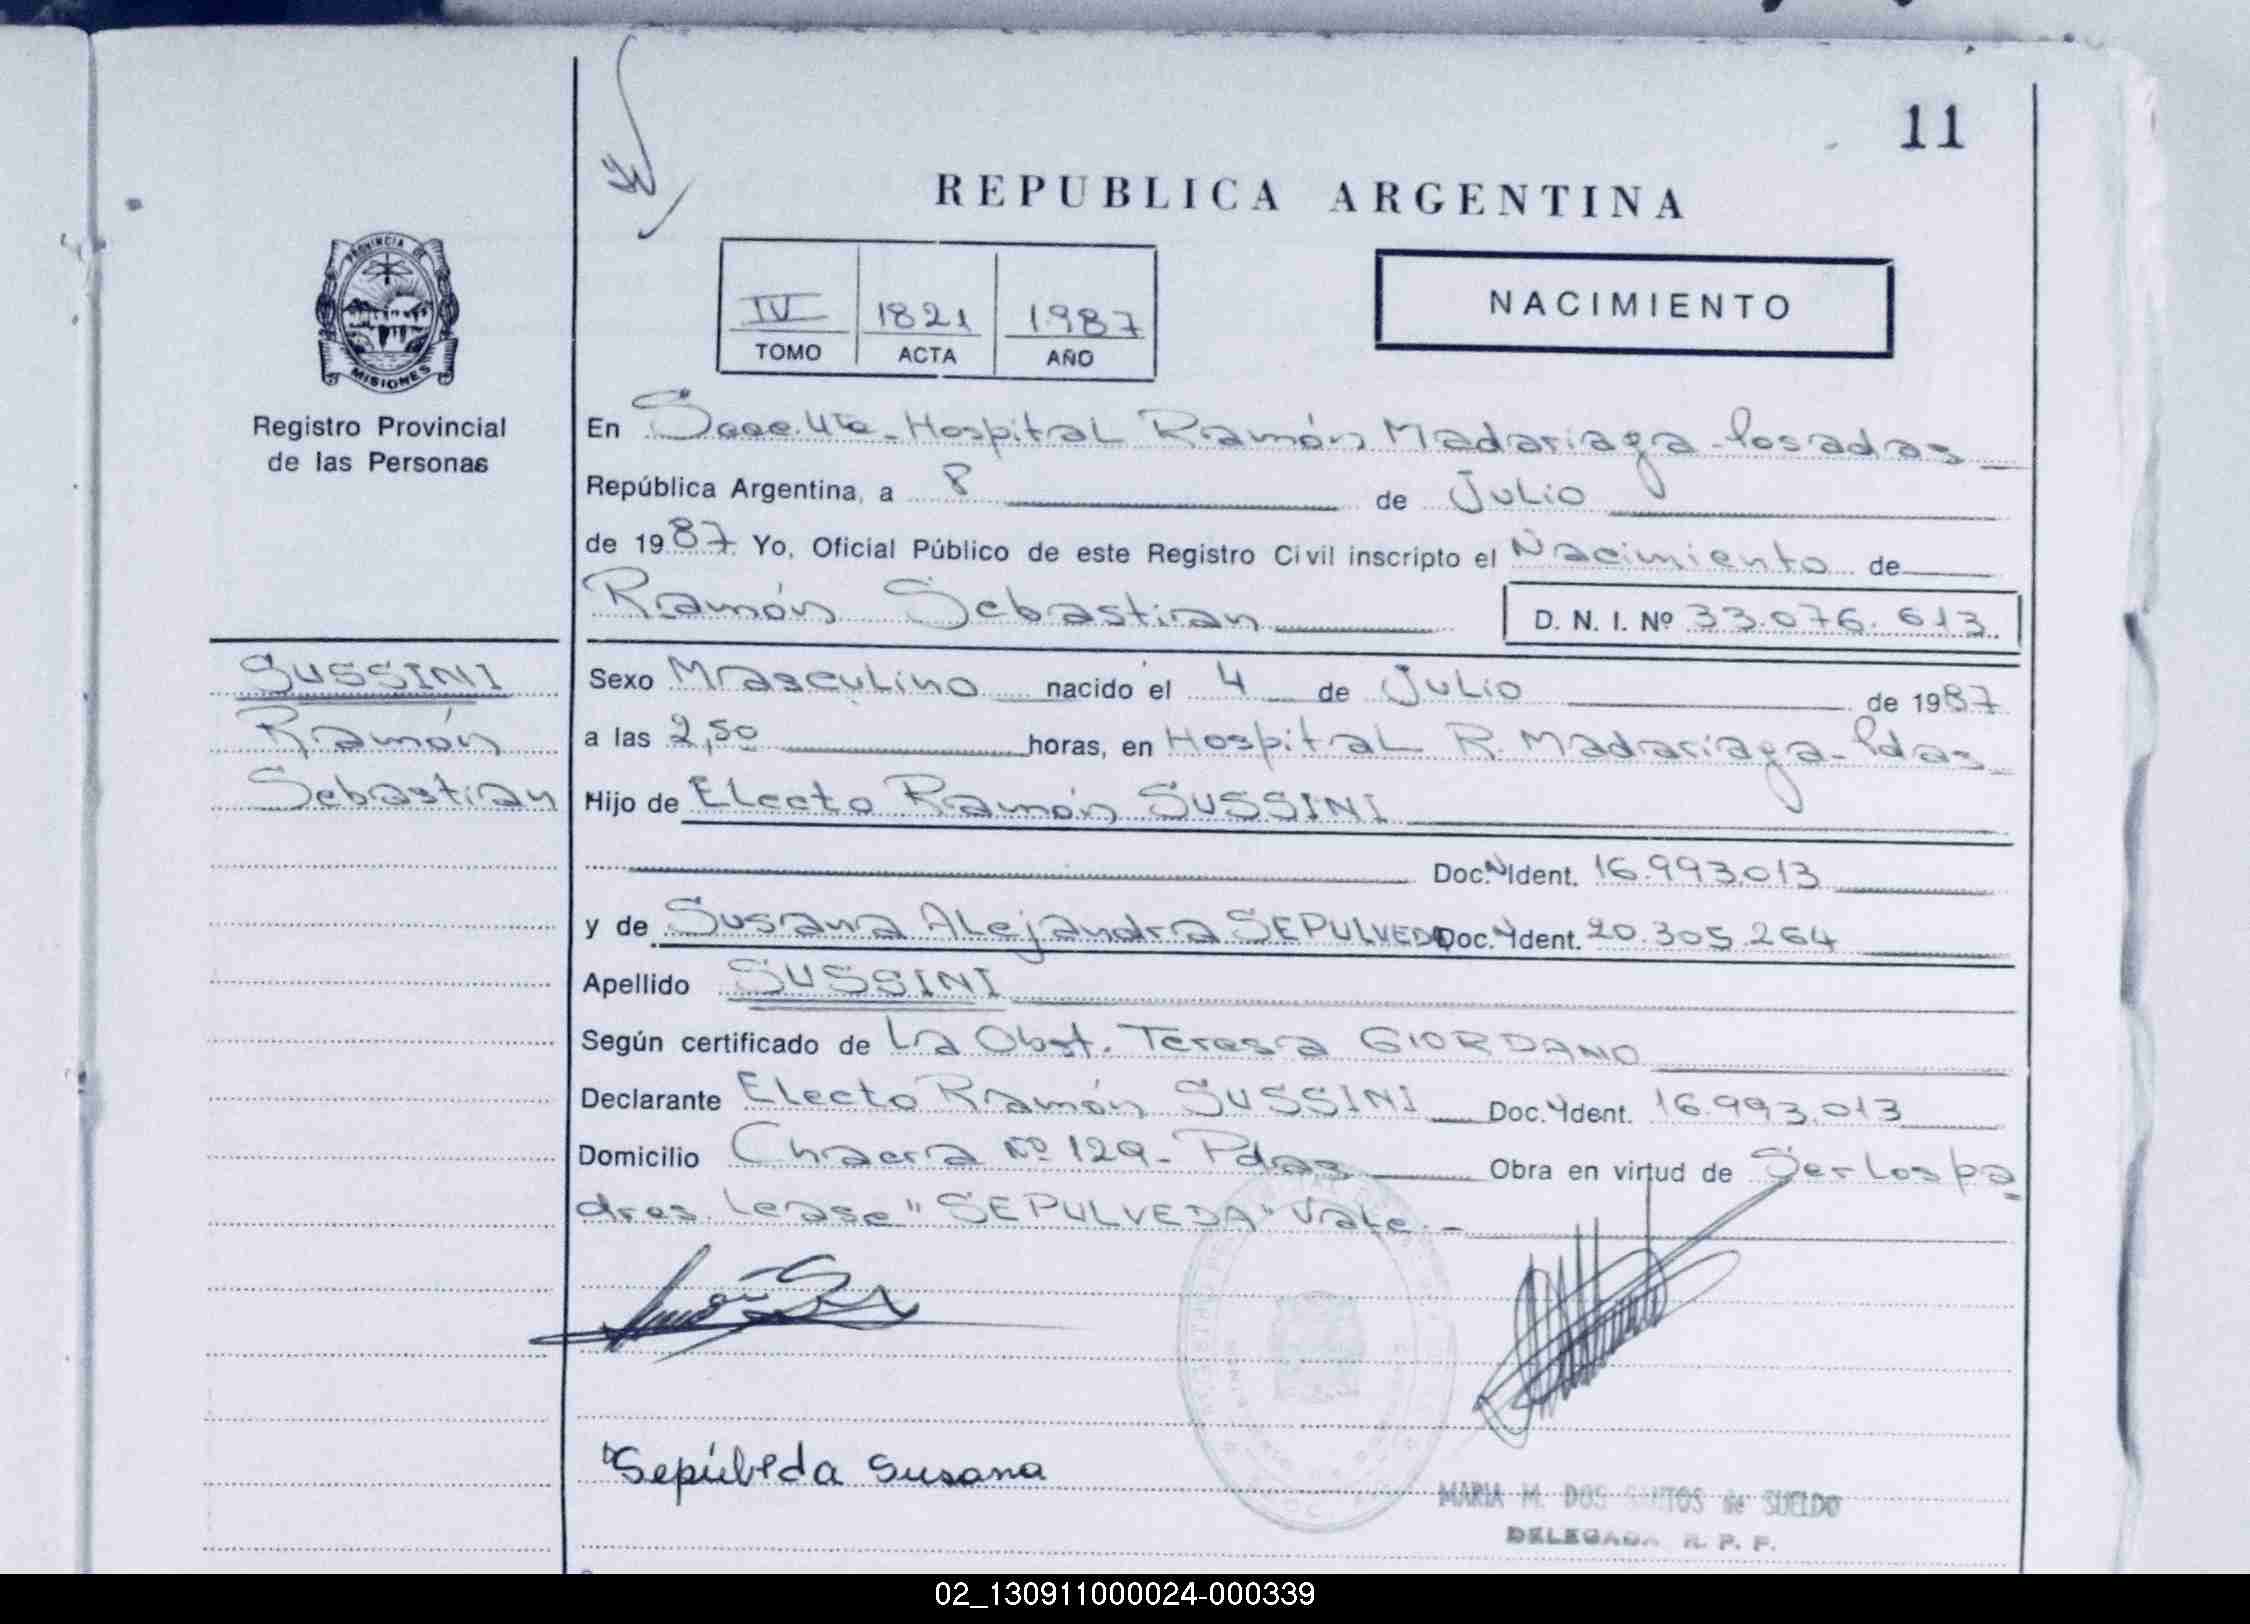 11
REPUBLICA ARGENTINA
PROVINCIA DE
MISIONES
Registro Provincial
de las Personas
IV 1821 1987
TOMO ACTA AÑO
NACIMIENTO
En Secc. 4ta - Hospital Ramón Madariaga - Posadas
República Argentina, a 8 de Julio
de 1987 Yo, Oficial Público de este Registro Civil inscripto el Nacimiento de
Ramón Sebastian D. N. I. Nº 33.076.613
SUSSINI
Ramón
Sebastian
Sexo Masculino nacido el 4 de Julio de 1987
a las 2,50 horas, en Hospital R. Madariaga - Pdas
Hijo de Electo Ramón SUSSINI
Doc. Ident. 16.993.013
y de Susana Alejandra SEPULVEDA Doc. Ident. 20.305.264
Apellido SUSSINI
Según certificado de La Obst. Teresa GIORDANO
Declarante Electo Ramón SUSSINI Doc. Ident. 16.993.013
Domicilio Chacra Nº 129 - Pdas Obra en virtud de Ser los pa
dres. Lease "SEPULVEDA" Vale. -
Sepúlveda Susana
MARIA M. DOS SANTOS de SUELDO
DELEGADA R. P. P.
02_130911000024-000339